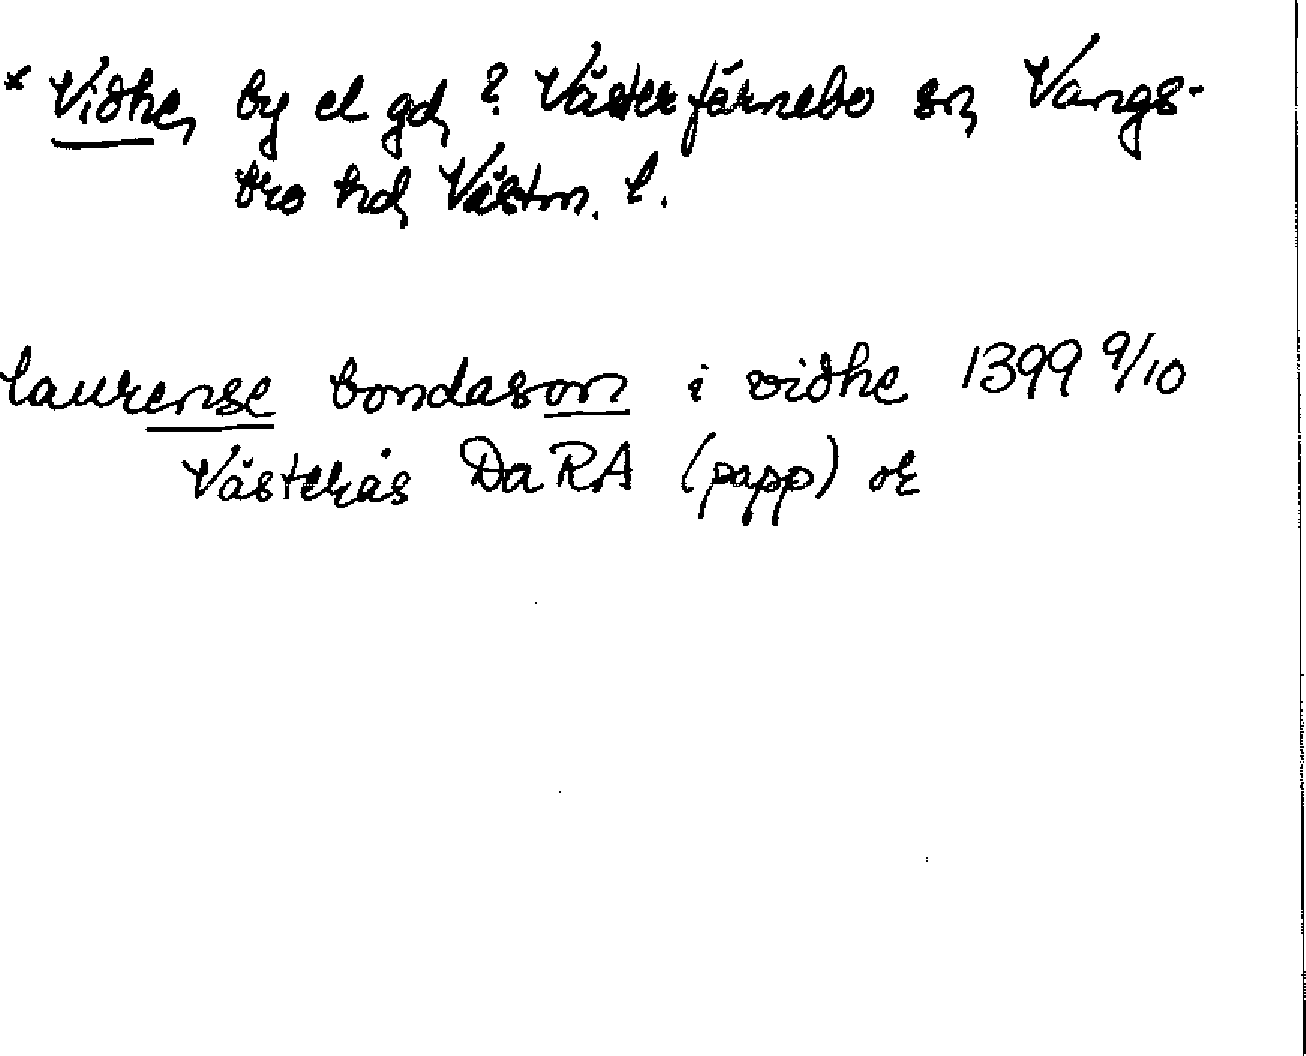 * Vidhe, by el gd, ? Västerfärnebo sn, Vangs-
bro hd, Västm. l.
laurense bondason i vidhe 1399 9/10
Västerås DaRA (papp) or